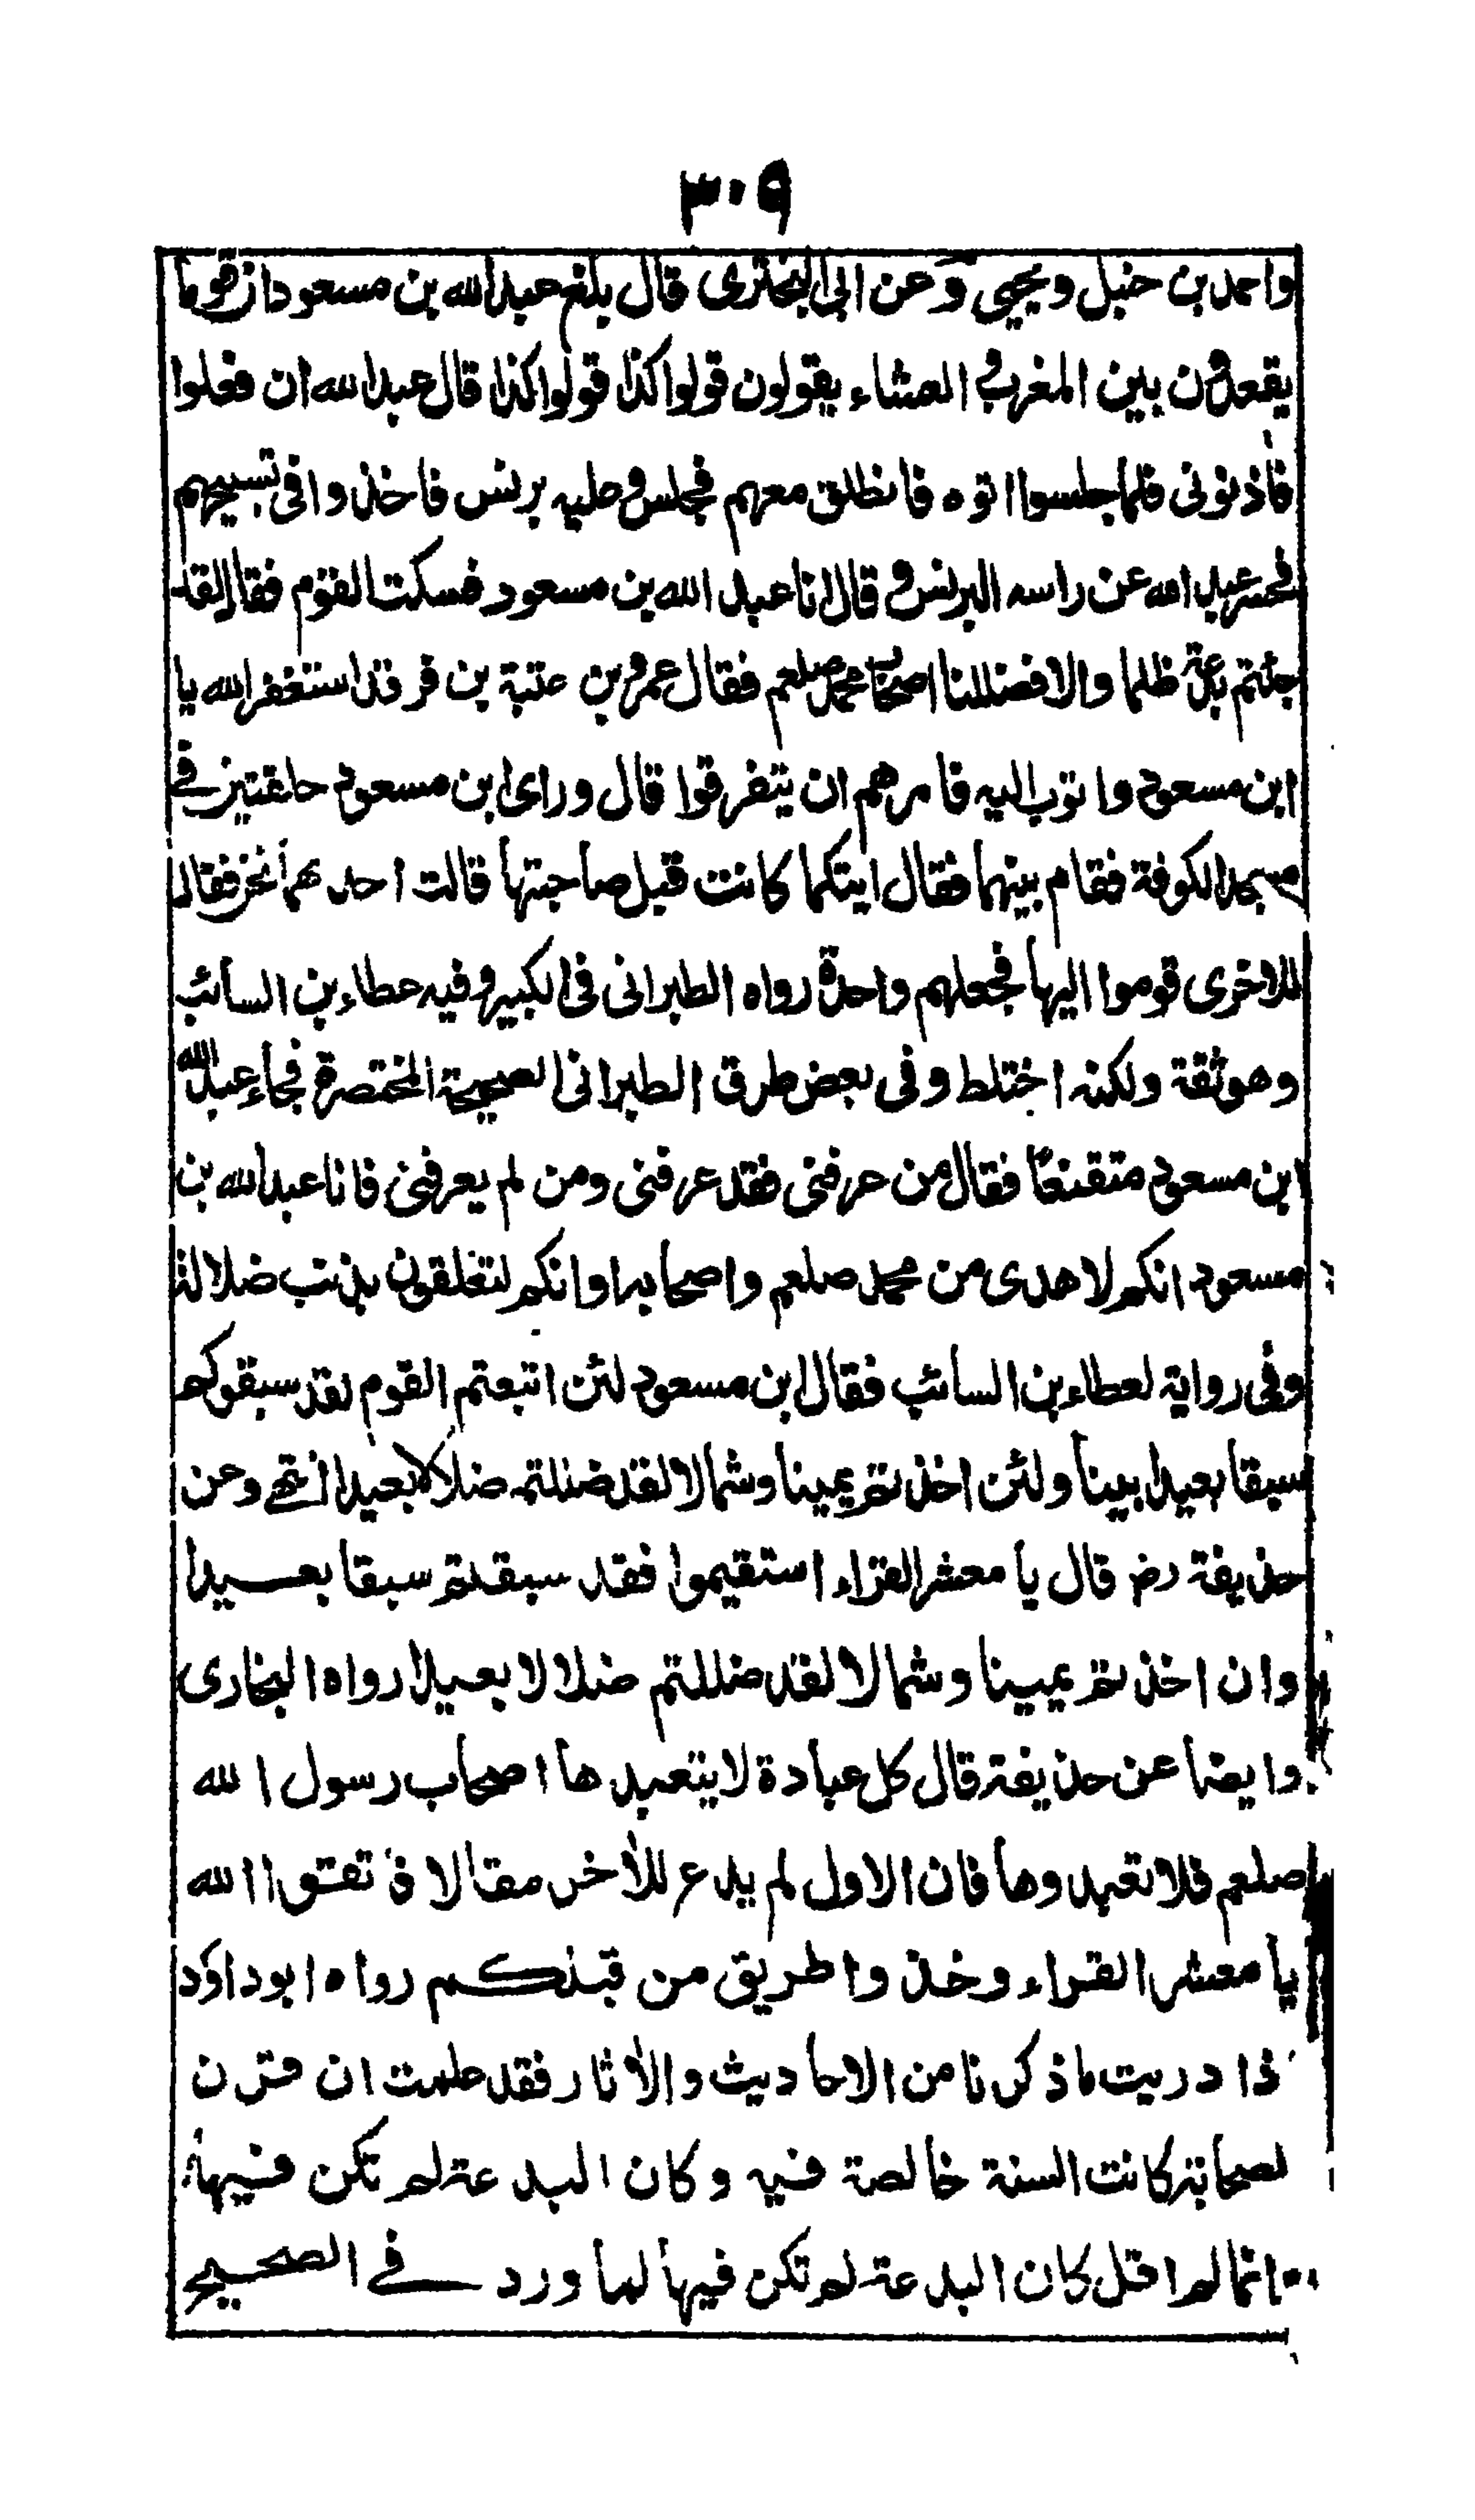 ٣٠٩
واحمد بن حنبل ويحيى وعن ابى البخترى قال بلغ عبدالله بن مسعود ان قوما
يقعدون بين المغرب و العشاء يقولون قولوا كذا قولوا كذا قال عبدالله ان فعلوا
فاذنونى فلما جلسوا اتوه فانطلق معهم فجلس وعليه برنس فاخذوا فى تسبيحهم
فحسر عبد الله عن راسه البرنس و قال انا عبد الله بن مسعود فسكت القوم فقال لقد
جئتم بدعة ظلما والا فضللنا اصحاب محمد صلعم فقال عمرو بن عتبة بن فرقد استغفر الله يا
ابن مسعود واتوب اليه فامرهم ان يتفرقوا قال وراى ابن مسعود حلقتين فى
مسجد الكوفة فقام بينهما فقال ايتكما كانت قبل صاحبتها قالت احدهما نحن فقال
للاخرى قوموا اليها فجعلهم واحدة رواه الطبرانى فى الكبير وفيه عطاء بن السائب
وهو ثقة ولكنه اختلط وفى بعض طرق الطبرانى الصحيحة المختصرة فجاء عبد الله
ابن مسعود متقنعا فقال من عرفنى فقد عرفنى ومن لم يعرفنى فانا عبدالله بن
مسعود انكم لاهدى من محمد صلعم واصحابه او انكم لتعلقون بذنب ضلالة
وفى رواية لعطاء بن السائب فقال ابن مسعود لئن اتبعتم القوم لقد سبقوكم
سبقا بعيدا بينا ولئن اخذتم يمينا وشمالا لقد ضللتم ضلالا بعيدا انتهى وعن
حذيفة رض قال يا معشر القراء استقيموا فقد سبقتم سبقا بعيدا
وان اخذتم يمينا وشمالا لقد ضللتم ضلالا بعيدا رواه البخارى
وايضا عن حذيفة قال كل عبادة لا يتعبدها اصحاب رسول الله
صلعم فلا تعبدوها فان الاول لم يدع للاخر مقالا فاتقوا الله
يا معشر القراء وخذوا طريق من قبلكم رواه ابوداؤد
ذا دريت ماذكرنا من الاحاديث والاثار فقد علمت ان قرن
لصحابة كانت السنة خالصة فيه وكان البدعة لم تكن فيها
انما لم اقل كان البدعة لم تكن فيها لما ورد فى الصحيح